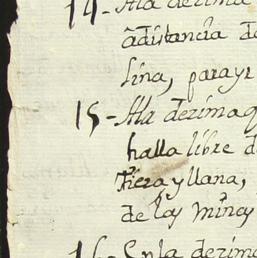 14 - Ala dezima
adistancia de
lina, para yr
15 - Ala dezima q
halla libre d
tiera y llana,
de las minas
16 - En la dezim